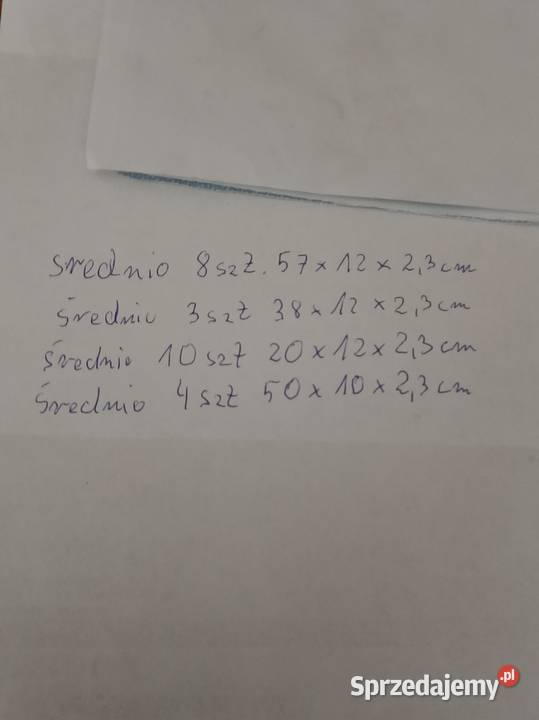 srednio 8 szt. 57 x 12 x 2,3 cm
średnio 3 szt 38 x 12 x 2,3 cm
średnio 10 szt 20 x 12 x 2,3 cm
średnio 4 szt 50 x 10 x 2,3 cm
Sprzedajemy.pl